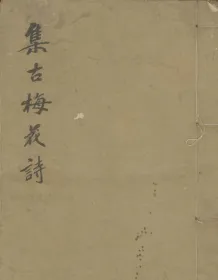 集古梅花詩